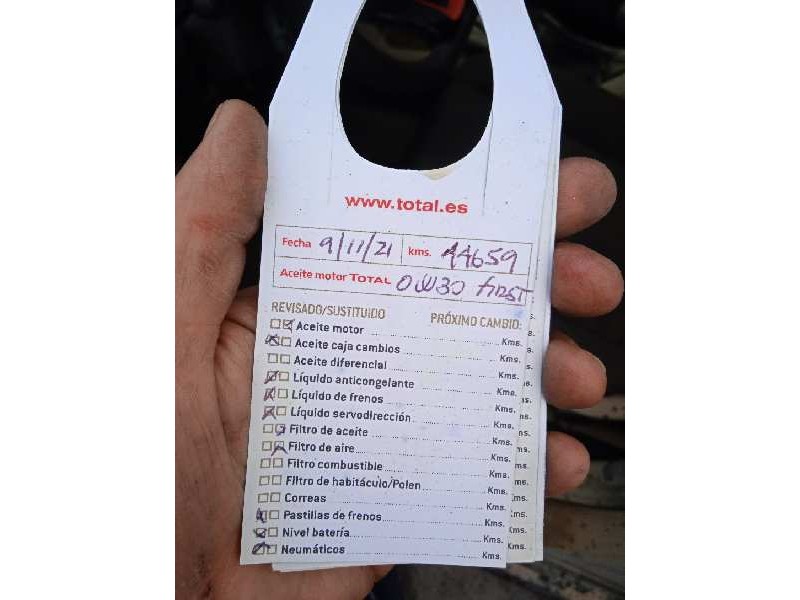 www.total.es
Fecha 9/11/21 kms. 44659
Aceite motor TOTAL 0W30 FIRST
REVISADO/SUSTITUIDO PRÓXIMO CAMBIO:
Aceite motor Kms.
Aceite caja cambios Kms.
Aceite diferencial Kms.
Líquido anticongelante Kms.
Líquido de frenos Kms.
Líquido servodirección Kms.
Filtro de aceite Kms.
Filtro de aire Kms.
Filtro combustible Kms.
Filtro de habitáculo/Polen Kms.
Correas Kms.
Pastillas de frenos Kms.
Nivel batería Kms.
Neumáticos Kms.